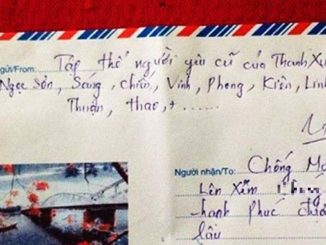 gửi/From: Tập thể người yêu cũ của Thanh Xu
Ngọc Sơn, Sáng, Chiến, Vinh, Phong, Kiên, Linh
Thuận, thao, + ......
Người nhận/To: Chồng
Lên Xẩm
hạnh phúc
lâu